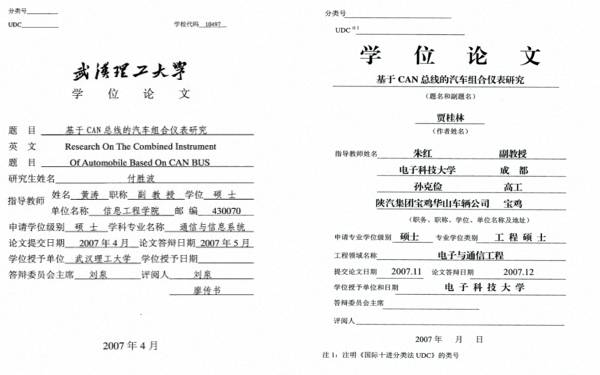 分类号
UDC
学校代码 10497
武汉理工大学
学 位 论 文
题 目 基于CAN总线的汽车组合仪表研究
英 文 Research On The Combined Instrument
题 目 Of Automobile Based On CAN BUS
研究生姓名 付胜波
指导教师 姓名 黄涛 职称 副 教 授 学位 硕 士
单位名称 信息工程学院 邮 编 430070
申请学位级别 硕 士 学科专业名称 通信与信息系统
论文提交日期 2007年4月 论文答辩日期 2007年5月
学位授予单位 武汉理工大学 学位授予日期
答辩委员会主席 刘泉 评阅人 刘泉
廖传书
2007年4月
分类号
UDC 注1
学 位 论 文
基于 CAN 总线的汽车组合仪表研究
(题名和副题名)
贾桂林
(作者姓名)
指导教师姓名 朱红 副教授
电子科技大学 成 都
孙克俭 高工
陕汽集团宝鸡华山车辆公司 宝鸡
(职务、职称、学位、单位名称及地址)
申请专业学位级别 硕士 专业学位类别 工 程 硕 士
工程领域名称 电子与通信工程
提交论文日期 2007.11 论文答辩日期 2007.12
学位授予单位和日期 电 子 科 技 大 学
答辩委员会主席
评阅人
2007年 月 日
注 1：注明《国际十进分类法 UDC》的类号